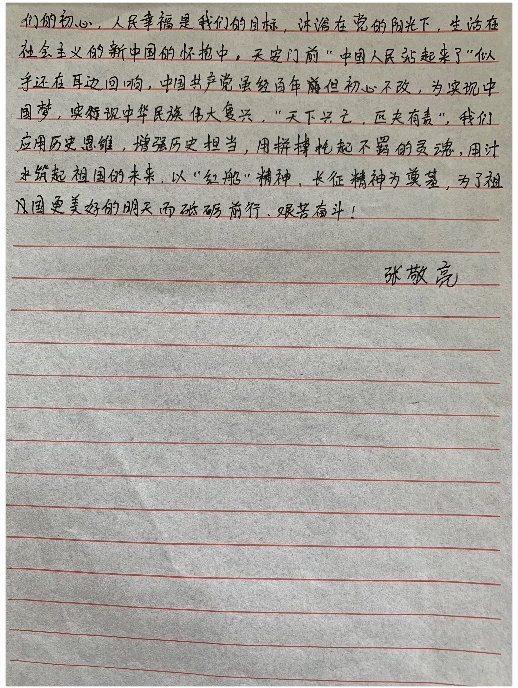 们的初心，人民幸福是我们的目标，沐浴在党的阳光下，生活在
社会主义的新中国的怀抱中。天安门前"中国人民站起来了"似
乎还在耳边回响，中国共产党虽经百年 但初心不改，为实现中
国梦，实现中华民族伟大复兴，"天下兴亡，匹夫有责"，我们
应用历史思维，增强历史担当，用拼搏托起不羁的灵魂，用汁
水筑起祖国的未来，以"红船"精神、长征精神为奠基，为了祖
国更美好的明天而砥砺前行、艰苦奋斗！
张敬亮